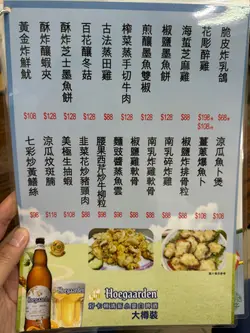 脆皮炸乳鴿
花彫醉雞
海蜇芝麻雞
椒鹽墨魚餅
煎釀墨魚雙椒
榨菜蒸手切牛肉
古法蒸田雞
百花釀冬菇
酥炸芝士墨魚餅
酥炸釀蝦夾
黃金炸鮮魷
$108
$128
$128
$108
$88
$88
$88
$88
涼瓜魚卜煲
薑蔥爆魚卜
椒鹽炸排骨粒
南乳碎炸雞
南乳炸雞軟骨
椒鹽雞軟骨
麵豉醬蒸魚雲
腰果西芹炒牛柳粒
韭菜花炒豬頸肉
美極生抽蝦
涼瓜炆斑腩
七彩炒黃鱔絲
$98
$116
$108
$98
$98
$88
$88
$88
Hoegaarden
Hoegaarden
大樽裝